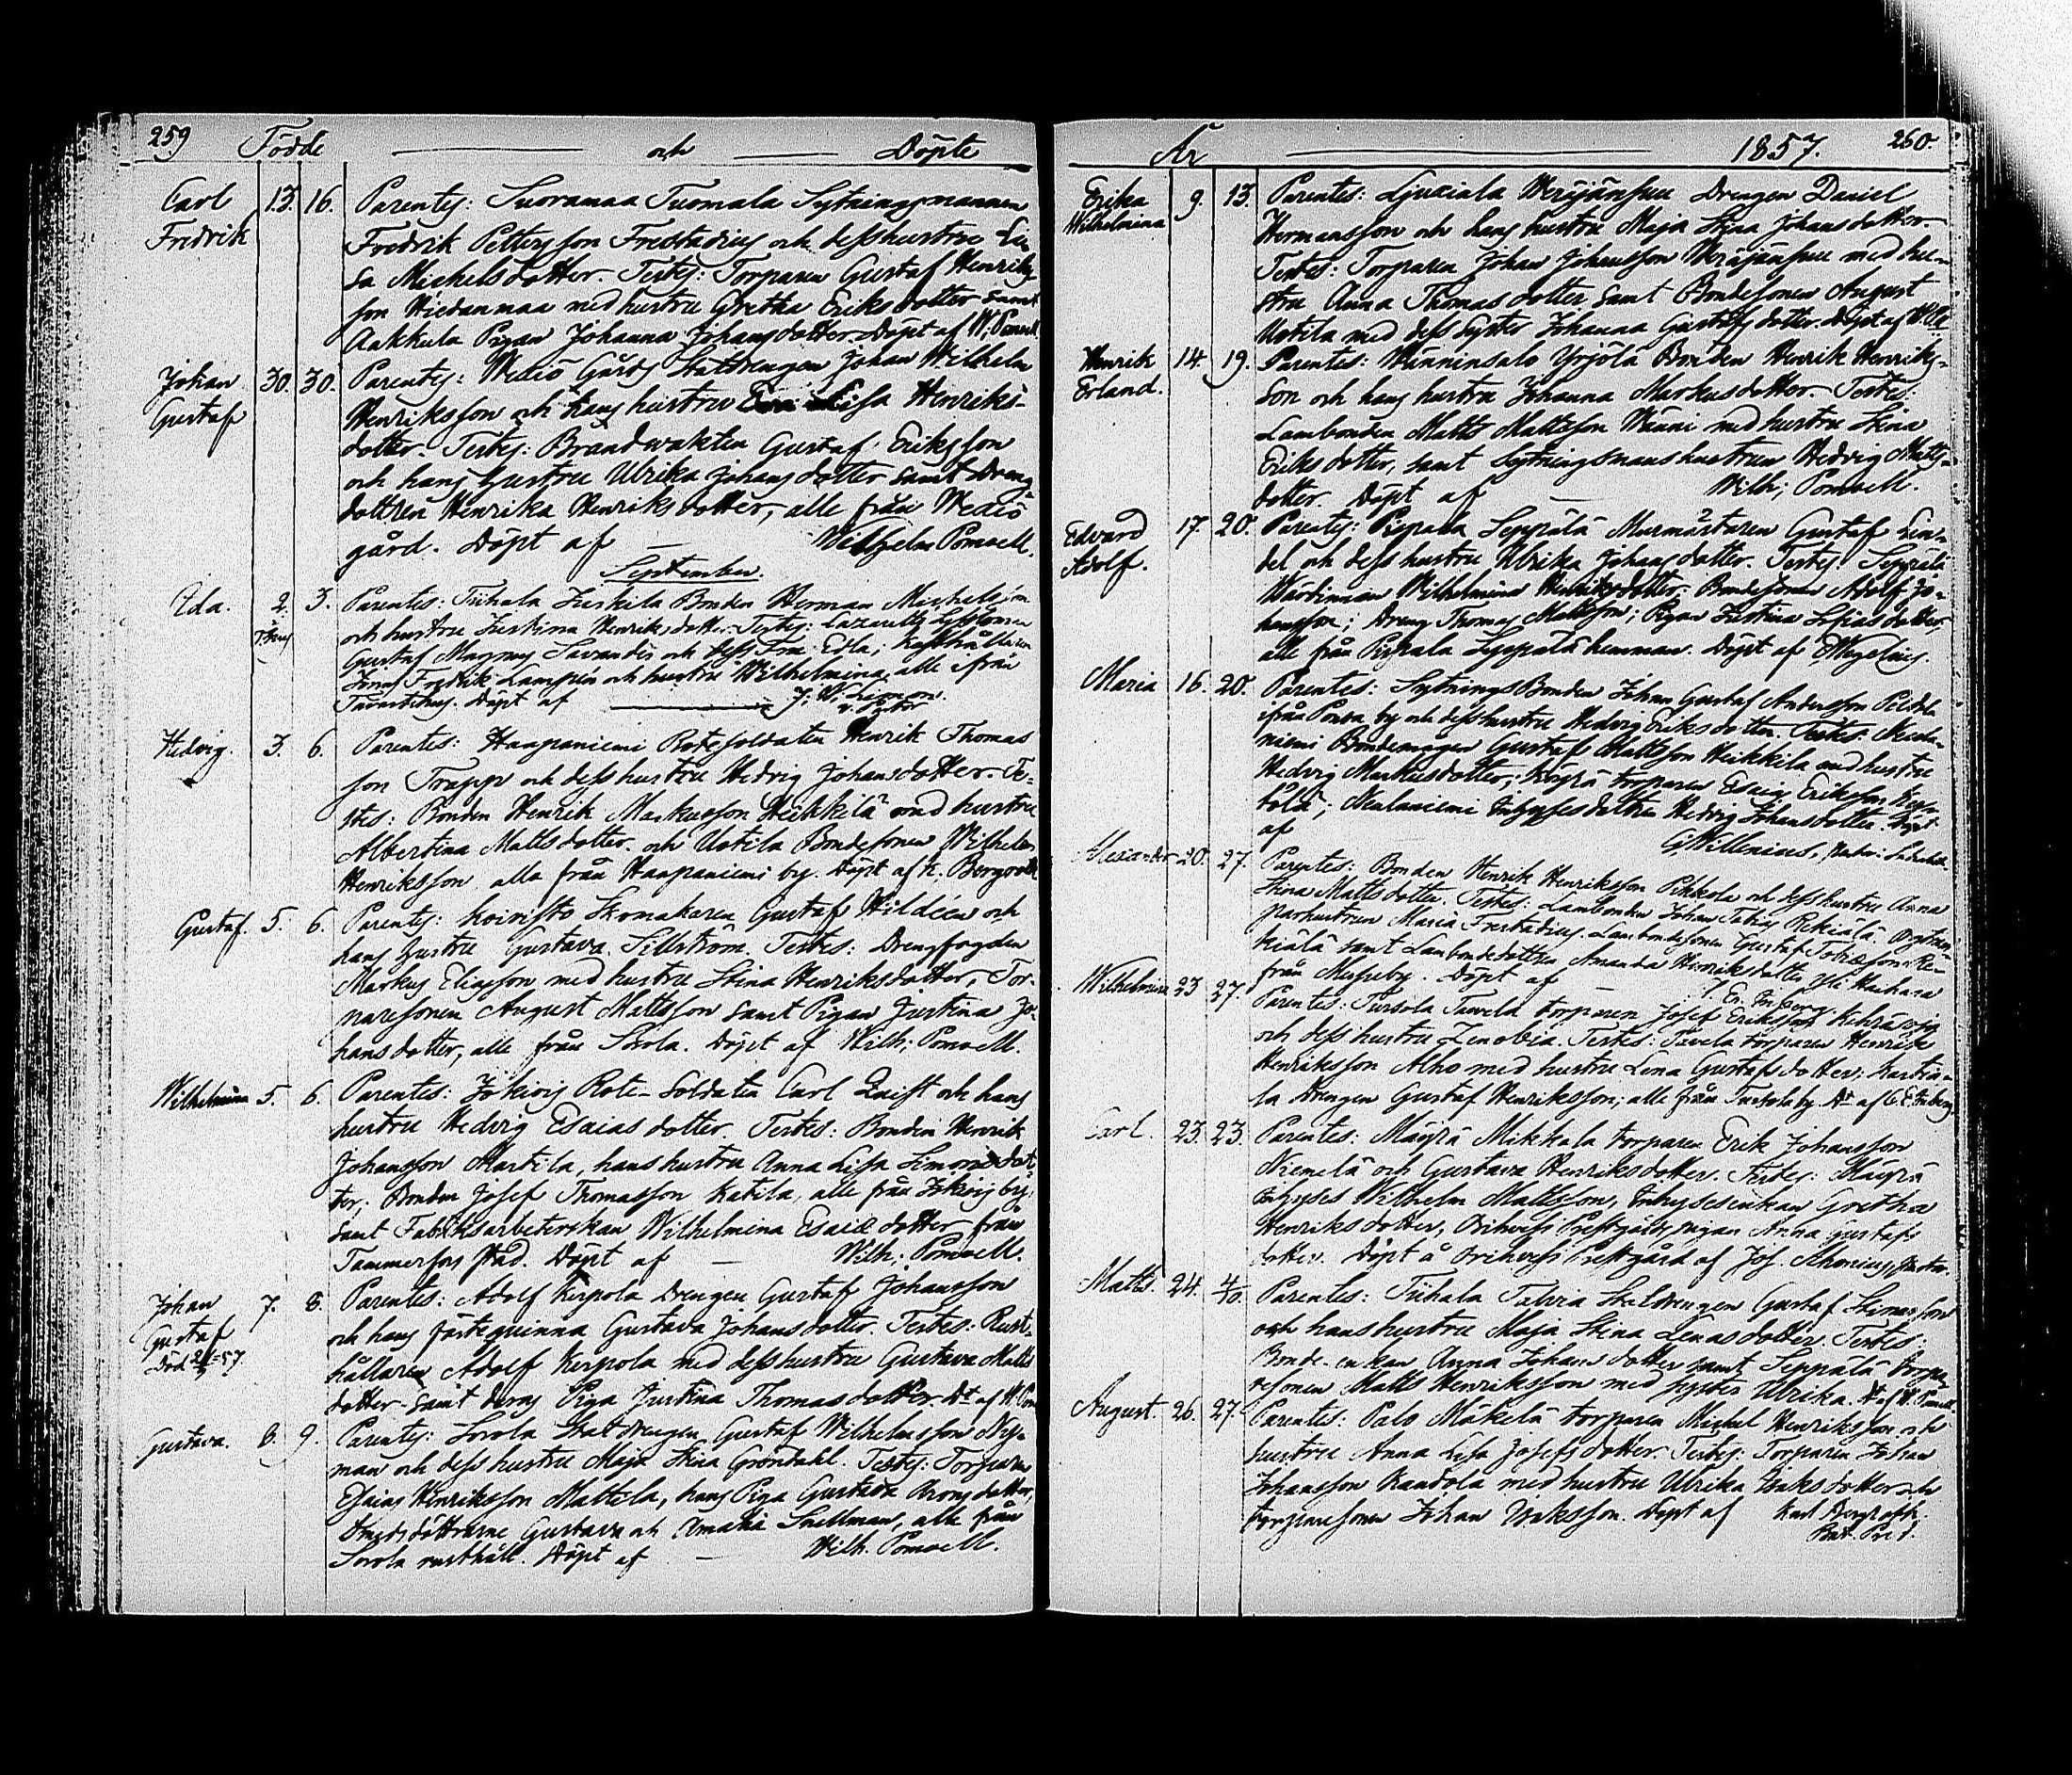 259 Födde — och — Döpte
Carl 13. 16. Parentes: Suoramaa Tuomala Sytningsmannen
Fredrik Fredrik Pettersson Frestadius och desshustru Li
sa Michelsdotter. Testes: Torparen Gustaf Henriks
son Hiedanmaa med hustru Gretha Eriksdotter samt
Aakkula Pigan Johanna Johansdotter. Döpt af W. Ponsell.
Johan 30. 30. Parentes: Wediö Gårds Statdrengen Johan Wilhelm
Gustaf Henriksson och hans hustru Lisa Henriks-
dotter. Testes: Brandwakten Gustaf Eriksson
och hans hustru Ulrika Johansdotter samt Dreng
dottren Henrika Henriksdotter, alle från Wediö
gård. Döpt af — Wilhelm Ponsell.
September.
Eda. 2. 3. Parentes: Tiihala Juskila Bonden Herman Michelsson
och hustru Justina Henriksdotter. Testes: Lazaretts Syssloman
Gustaf Magnus Savander och dess Fru Edla;
Fredrik Lampén och hustru Wilhelmina, alle från
Tavastehus. Döpt af — J. W. Limon
v. Pastor
Hedvig. 3. 6. Parentes: Haapaniemi Rotesoldaten Henrik Thomas
son Trapp och desshustru Hedvig Johansdotter. Te-
stes: Bonden Henrik Markusson Heikkilä med hustru
Albertina Mattsdotter och Uotila Bondesonen Wilhelm
Henriksson alla från Haapaniemi by. Döpt af K. Bergroth
Gustaf. 5. 6. Parentes: Koivisto Skomakaren Gustaf Hildéen och
hans hustru Gustava Sillström. Testes: Drengfogden
Markus Eliasson med hustru Stina Henriksdotter, Tor-
paresonen August Mattsson samt Pigan Justina Jo-
hansdotter, alle från Sorola. Döpt af Wilh; Ponsell.
Wilhelmina 5. 6. Parentes: Jokivis Rote-Soldaten Carl Quist och hans
hustru Hedvig Esaiasdotter. Testes: Bonden Henrik
Johansson Martila, hans hustru Anna Lisa Simonsdot
ter; Bonden Josef Thomasson Katila, alle från Jokiois by,
samt Fabriksarbeterskan Wilhelmina Esaiædotter från
Tammerfors stad. Döpt af — Wilh; Ponsell.
Johan 7. 8. Parentes: Adolf Kirpola Drengen Gustaf Johansson
Gustaf och hans fästeqvinna Gustava Johansdotter. Testes: Rust-
hållaren Adolf Kirpola med desshustru Gustava Matts
dotter samt deras Piga Justina Thomasdotter. Dt af W. Pon
Gustava. 8. 9. Parentes: Sorola Statdrengen Gustaf Wilhelmsson Ny-
man och desshustru Maja Stina Gröndahl. Testes: Torparen
Esaias Henriksson Mattila, hans Piga Gustava Aronsdotter,
Smedsdöttrarne Gustava och Amalia Snellman, alle från
Sorola rusthåll. Döpt af — Wilh. Ponsell.
År — 1857. 260.
Erika 9. 13. Parentes: Werijänsuu Drengen Daniel
Wilhelmina Hermansson och hans hustru Maja Stina Johansdotter.
Testes: Torparen Johan Johansson Weräjänsuu med hu-
stru Anna Thomasdotter samt Bondesonen August
Uotila med dess Syster Johanna Gustafsdotter. Döpt af
Henrik 14. 19. Parentes: Wänninsalo Yrjölä Bonden Henrik Henriks-
Erland. son och hans hustru Johanna Markusdotter. Testes:
Lambonden Matts Mattsson Wänni med hustru Stina
Eriksdotter, samt Sytningsmans hustrun Hedvig Matts-
dotter. Döpt af — Wilh; Ponsell.
Edvard 17. 20. Parentes: Seppälä Murmästaren Gustaf Lin-
Adolf. del och dess hustru Ulrika Johansdotter. Testes: Seppälä
Wärdinnan Wilhelmina Henriksdotter; Bondesonen Adolf Jo-
hansson; Dreng Thomas Mattsson; Pigan Justina Esaiasdotter,
alle från Seppälä hemman. Döpt af
Maria 16. 20. Parentes: Sytnings Bonden Johan Gustaf Andersson
ifrån by och desshustru Hedvig Eriksdotter. Testes: Neula-
niemi Bondemågen Gustaf Mattsson Heikkilä med hustru
Hedvig Markusdotter; torparen Esaias Eriksson
Neulaniemi Inhysesdottren Hedvig Johansdotter. Döpt
af G. Willenius,
Alexander 20. 27. Parentes: Bonden Henrik Henriksson Pihkola och desshustru Anna
Stina Mattsdotter. Testes: Lambonden Johan
Maria Frestadius. Lambondesonen Gustaf
samt Lambondedottren Amanda Henriksdotter
från by. Döpt af —
Wilhelmina 23 27. Parentes: Tursola Tavela torparen Josef Eriksson
och dess hustru Zenobia. Testes: Tavela torparen Henrik
Henriksson Alho med hustru Lena Gustafsdotter;
Drengen Gustaf Henriksson; alle från Tursola by. Dt af
Carl. 23. 23. Parentes: Mäyrä Mikkala torparen Erik Johansson
Niemelä och Gustava Henriksdotter. Testes: Mäyrä
Inhyses Wilhelm Mattsson, Inhysesenkan Gretha
Henriksdotter, Orihvesi Prestgårds pigan Anna Gustafs
dotter. Döpt å Orihvesi Prestgård af Jos.
Matts. 24. 4/10. Parentes: Tiihala Talvia Statdrengen Gustaf Simonsson
och hans hustru Maja Stina Lenasdotter. Testes:
Bonde-enkan Anna Johansdotter samt Seppälä torpa
resonen Matts Henriksson med syster Ulrika. Dt af W. Ponsell.
August. 26. 27. Parentes: Palo Mäkelä torparen Michel Henriksson och
hustru Anna Lisa Josefsdotter. Testes: Torparen Johan
Johansson Randola med hustru Ulrika Isaksdotter och
torparesonen Johan Isaksson. Döpt af Karl Bergroth.